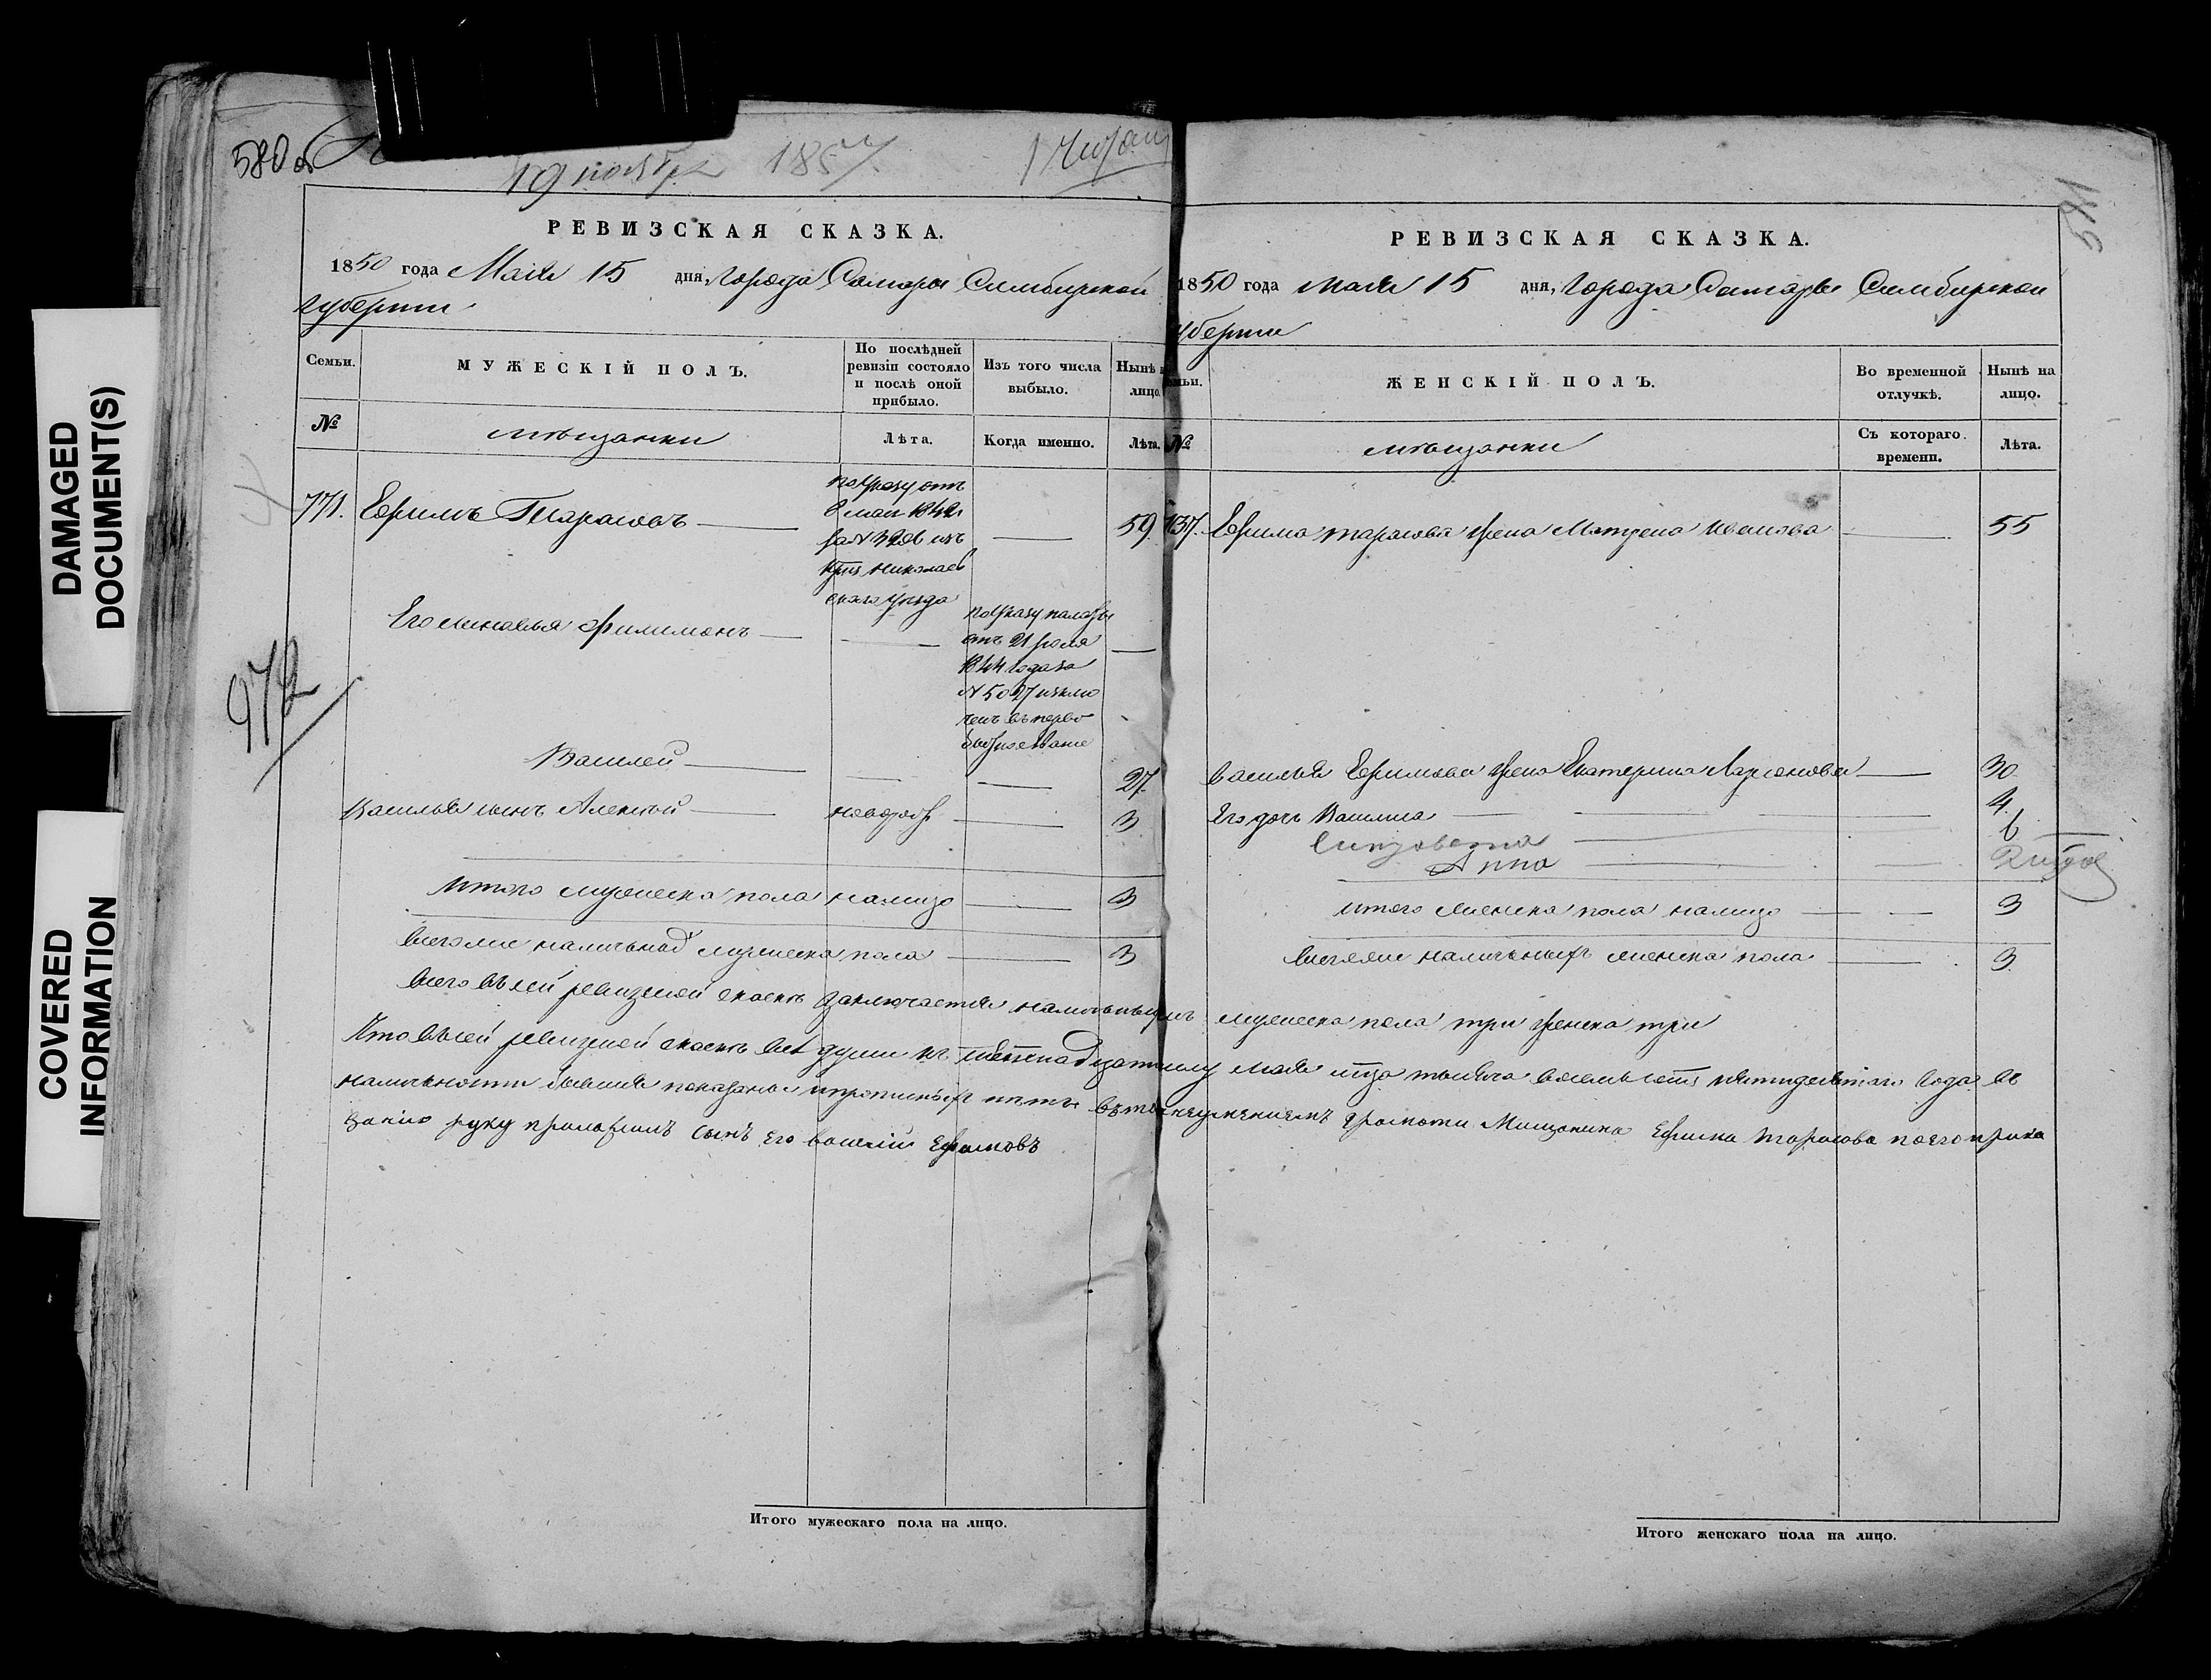 DAMAGED
DOCUMENT(S)
COVERED
INFORMATION
580 об
19 ноября 1857.
РЕВИЗСКАЯ СКАЗКА.
1850 года Маія 15 дня, города Самары Симбирской
губернии
Семьи.
МУЖЕСКІЙ ПОЛЪ.
По послѣдней
ревизіи состояло
и послѣ оной
прибыло.
Изъ того числа
выбыло.
Нынѣ на
лицо.
№
мѣщанки
Лѣта.
Когда именно.
Лѣта.
771.
Ефимъ Тарасовъ
по указу отъ
8 маія 1842
за № изъ
Николаев
скаго уезда
59.
Его сыновья Филимонъ
по указу палаты
отъ 21 июля
1844 года за
№ 5027 исклю
ченъ въ перво
972
Василей
27.
Васильа сынъ Алексей
новорож
3
Итого мужеска пола налицо
3
Всего же наличнаго мужеска пола
3
581
РЕВИЗСКАЯ СКАЗКА.
1850 года маія 15 дня, города Самары Симбирской
губернии
Семьи.
ЖЕНСКІЙ ПОЛЪ.
Во временной
отлучкѣ.
Нынѣ на
лицо.
№
мѣщанки
Съ котораго
времени.
Лѣта.
Ефима тарасова жена Матрена иванова
55
Василья Ефимова жена Екатерина Ларионова
30
Его дочь Василиса
4.
Лизавета
6
Анна
итого женска пола налицо
3
Всего же наличныхъ женска пола
3.
Всего въ сей ревизской сказкѣ заключается наличныхъ мужеска пола три женска три
Что въ сей ревизской сказкѣ все души къ шестнадцатому маія сего тысяча восемьсотъ пятидесятаго года въ
наличности бывшия показаны и прописныхъ нетъ въ томъ неумениемъ грамоти Мищанина Ефима тарасова по его прика
занию руку приложилъ сынъ его василий Ефимовъ
Итого мужескаго пола на лицо.
Итого женскаго пола на лицо.